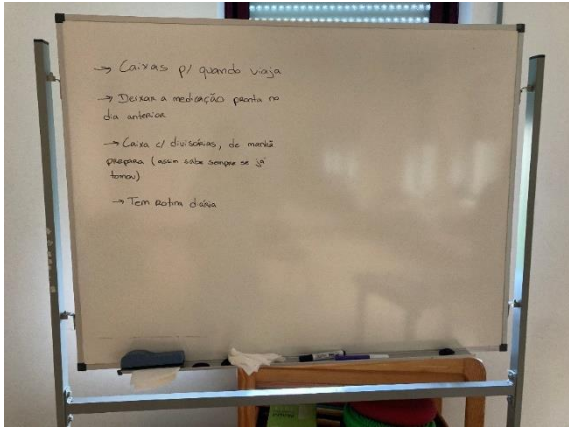 → Caixas p/ quando viaja
→ Deixar a medicação pronta no
dia anterior
→ Caixa c/ divisórias, de manhã
prepara (assim sabe sempre se já
tomou)
→ Tem rotina diária